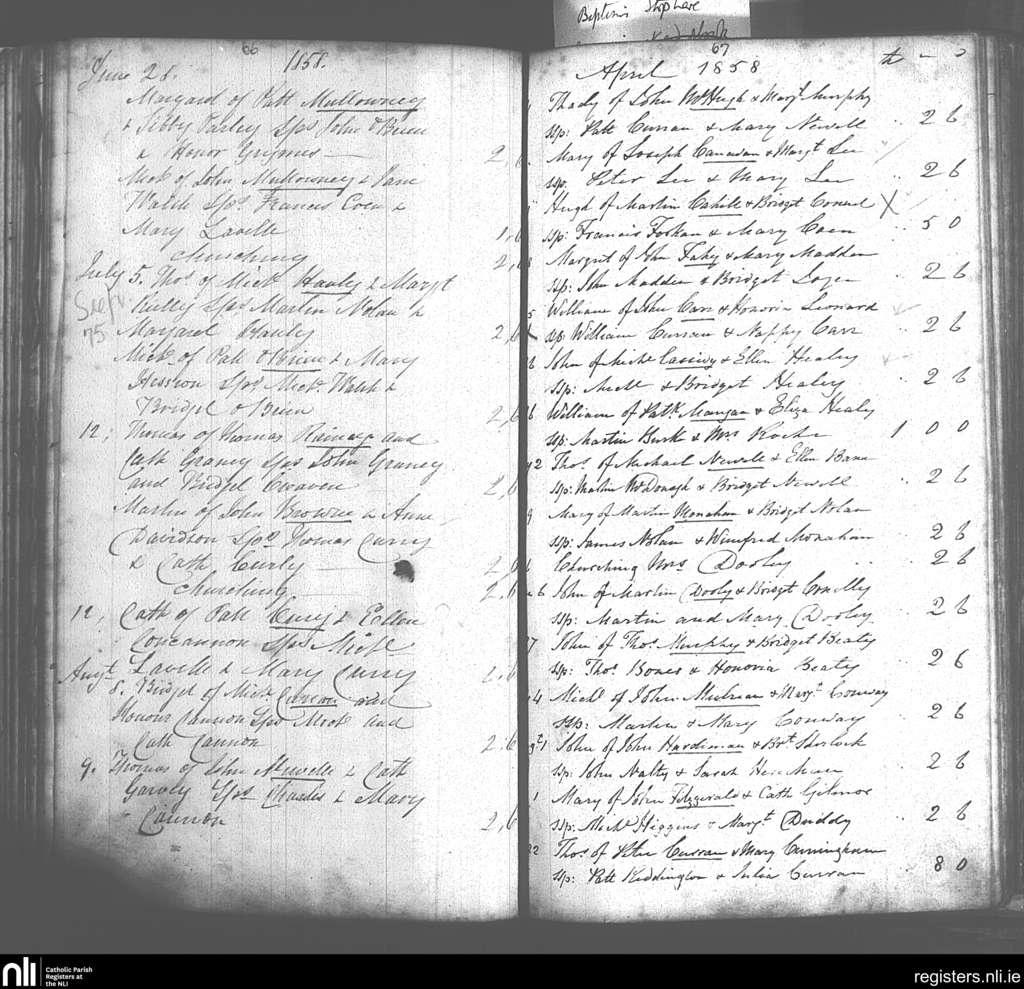 Baptisms Stop here
66
1858.
June 28.
Margaret of Patt Mullowney
& Sibby Varley Spr John O'Brien
& Honor
2,6
Mich of John Mullowney & Jane
Walsh Sprs Francis Coen &
Mary Lavelle
1,6
Churching
2,6
July 5. Thos of Mich Hanly & Margt
Reilly Sprs Martin Nolan &
Margaret Hanly
2,6
Mich of Patt O'Brien & Mary
Hession Sprs Mich Walsh &
Bridget O Brien
2,6
12, Thomas of Thomas and
Cath Graney Sprs John Graney
and Bridget Craven
2,6
Martin of John Browne & Anne
Davidson Sprs Thomas Curry
& Cath Curly
2,6
Churching
2,6
12, Cath of Patt Curry & Ellen
Concannon Sprs Michl
Lavelle & Mary Curry
2,6
Augt
8. Bridget of Mich Cannon and
Honour Cannon Sprs Mich and
Cath Cannon
2,6
9. Thomas of John Newelle & Cath
Garvey Sprs Charles & Mary
Cannon
2,6
67
April 1858
Thady of John McHugh & Margt Murphy
sp: Patt Curran & Mary Newell .. 2 6
Mary of Joseph Canavan & Margt Lee
sp. Peter Lee & Mary Lee .. 2 6
Hugh of Martin Cahill & Bridgt X
sp: Francis Forkan & Mary Coen .. 5 0
Margrit of John Fahy & Mary Madden
sp: John Madden & Bridget .. 2 6
William of John Carr & Honoria Leonard
sp William Curran & Nappy Carr .. 2 6
John of Mich Cassidy & Ellen Healey
sp: Mich & Bridget Healey .. 2 6
William of Patk Mangan & Eliza Healy
sp: Martin Burk & Mrs Roche 1 0 0
Thos of Michael Newell & Ellen Bane
sp: Martin McDonagh & Bridget Newell .. 2 6
Mary of Martin Monahan & Bridgt Nolan
sp: James Nolan & Winifred Monahan .. 2 6
Churching Mrs Dooley .. 2 6
John of Martin Dooly & Bridgt Connelly
sp: Martin and Mary Dooley .. 2 6
John of Thos Murphy & Bridget Beaty
sp: Thos Bones & Honoria Beaty .. 2 6
Michl of John & Margt Conway
sp: Martin & Mary Conway .. 2 6
John of John Hardiman & Brt
sp: John Nalty & Sarah .. 2 6
Mary of John Fitzgerald & Cath Gilmore
sp: Mich Higgins & Margt Duddy .. 2 6
Thos of Peter Curran & Mary Cunningham
sp: Patt Kiddington & Julia Curran .. 8 0
nli
Catholic Parish
Registers at
the NLI
registers.nli.ie